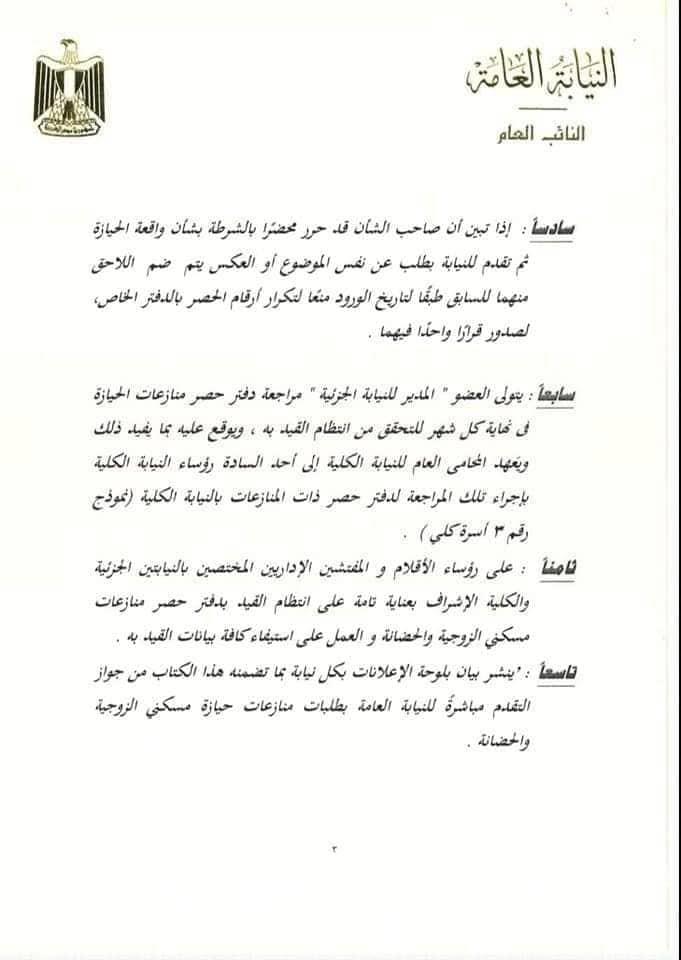 النيابة العامة
النائب العام
جمهورية مصر العربية
سادساً : إذا تبين أن صاحب الشأن قد حرر محضرًا بالشرطة بشأن واقعة الحيازة
ثم تقدم للنيابة بطلب عن نفس الموضوع أو العكس يتم ضم اللاحق
منهما للسابق طبقًا لتاريخ الورود منعًا لتكرار أرقام الحصر بالدفتر الخاص،
لصدور قرارًا واحدًا فيهما .
سابعاً : يتولى العضو " المدير للنيابة الجزئية " مراجعة دفتر حصر منازعات الحيازة
فى نهاية كل شهر للتحقق من انتظام القيد به ، ويوقع عليه بما يفيد ذلك
ويَعهد المحامى العام للنيابة الكلية إلى أحد السادة رؤساء النيابة الكلية
بإجراء تلك المراجعة لدفتر حصر ذات المنازعات بالنيابة الكلية (نموذج
رقم ٣ أسرة كلي) .
ثامناً : على رؤساء الأقلام و المفتشين الإداريين المختصين بالنيابتين الجزئية
والكلية الإشراف بعناية تامة على انتظام القيد بدفتر حصر منازعات
مسكني الزوجية والحضانة و العمل على استيفاء كافة بيانات القيد به .
تاسعاً : ُينشر بيان بلوحة الإعلانات بكل نيابة بما تضمنه هذا الكتاب من جواز
التقدم مباشرةً للنيابة العامة بطلبات منازعات حيازة مسكني الزوجية
والحضانة .
٣